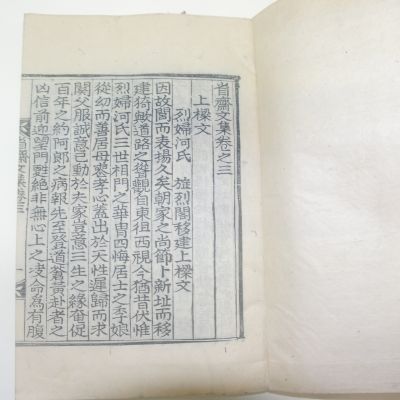 省齋文集卷之三
上樑文
烈婦河氏 旌烈閭移建上樑文
因故閭而表揚久矣朝家之尙節卜新址而移
建猗歟道路之聳觀自東徂西視今猶昔伏惟
烈婦河氏三世相門之華胄四悔居士之季娘
從幼而善居母喪孝心蓋出於天性遲歸而求
闋父服誠意已動於夫家豈意三生之緣奄促
百年之約阿郞之病報先至登道蒼黃赴者之
凶信前迎望門躄絕非無心上之决命爲有腹
省齋文集卷三
一